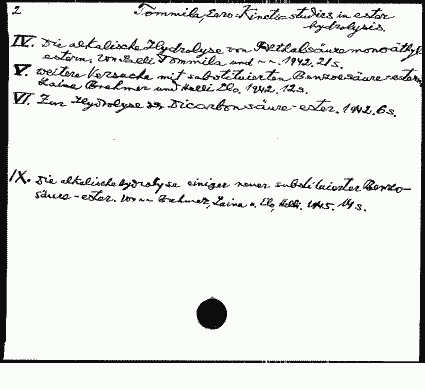 2 Tommila, Eero. Kinetic studies in ester
hydrolysis.
IV. Die alkalische Hydrolyse von Phthalsäuremonoäthyl
estern. Von Salli Tommila und ~~. 1942. 21 s.
V. Weitere Versuche mit substituierten Benzoesäure-estern.
Laina Brehmer und Helli Elo. 1942. 12 s.
VI. Zur Hydrolyse der Dicarbonsäure-ester. 1942. 6 s.
IX. Die alkalische Hydrolyse einiger neuer substituierter Benzo-
säure-ester. Von ~~ Brehmer, Laina u. Elo, Helli. 1945. 14 s.